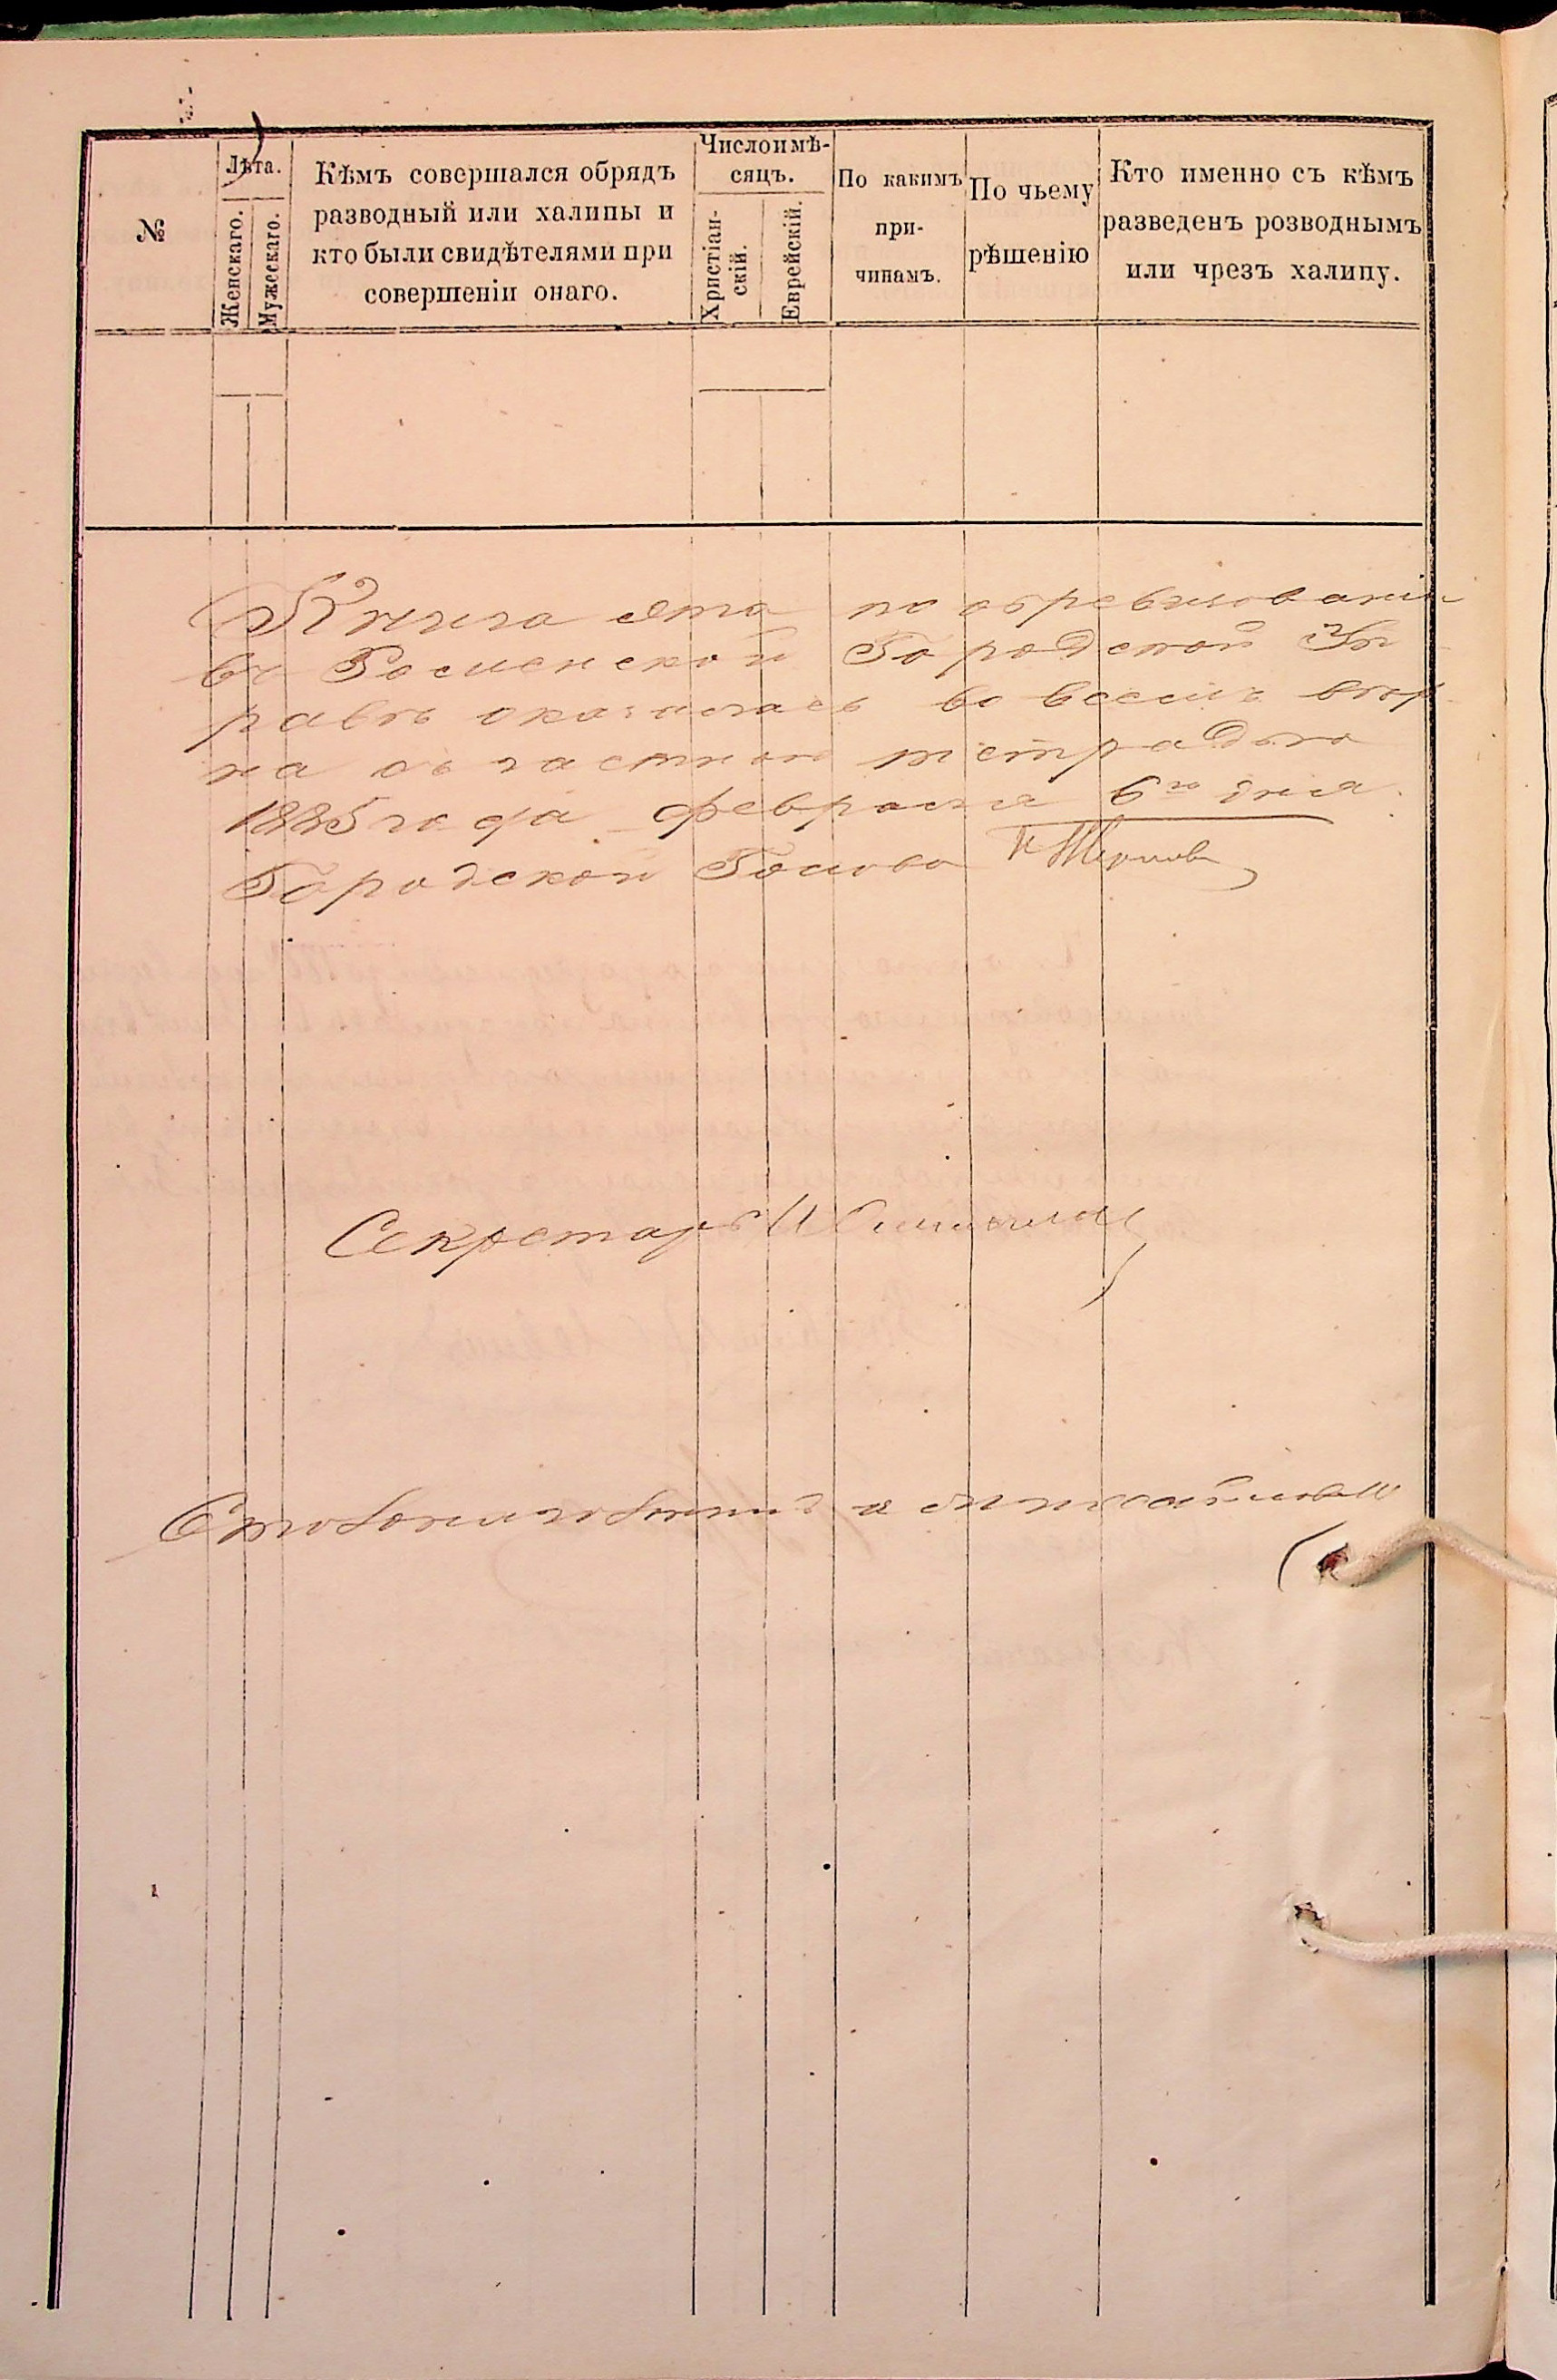 №
Лѣта.
Женскаго.
Мужескаго.
Кѣмъ совершался обрядъ
разводный или халипы и
кто были свидѣтелями при
совершеніи онаго.
Число и мѣ-
сяцъ.
Христіан-
скій.
Еврейскій.
По какимъ
при-
чинамъ.
По чьему
рѣшенію
Кто именно съ кѣмъ
разведенъ розводнымъ
или чрезъ халипу.
Книга эта по обревизованіи
въ Роменской Городской Уп
равѣ оказалась во всемъ вѣр
на съ частною тетрадью
1885 года февраля 6го дня.
Городской Голова
Секретарь